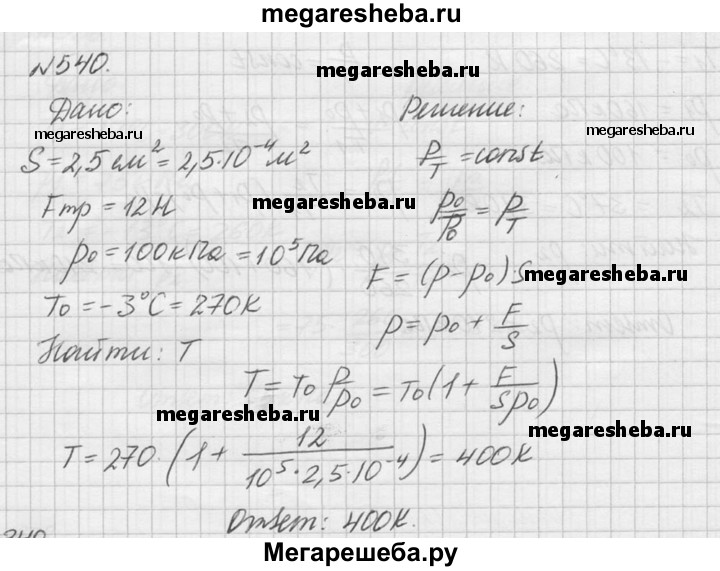 megaresheba.ru
№540.
megaresheba.ru
Дано:
Решение:
megaresheba.ru
megaresheba.ru
S = 2,5 см² = 2,5·10⁻⁴ м²
p/T = const
Fтр = 12 Н
megaresheba.ru
p₀/P₀ = p/T
p₀ = 100 кПа = 10⁵ Па
F = (p - p₀)·S
megaresheba.ru
T₀ = -3°C = 270 K
p = p₀ + F/S
Найти: T
T = T₀ p/p₀ = T₀(1 + F/Sp₀)
megaresheba.ru
megaresheba.ru
T = 270·(1 + 12/10⁵·2,5·10⁻⁴) = 400 K
Ответ: 400 K.
Мегарешеба.ру